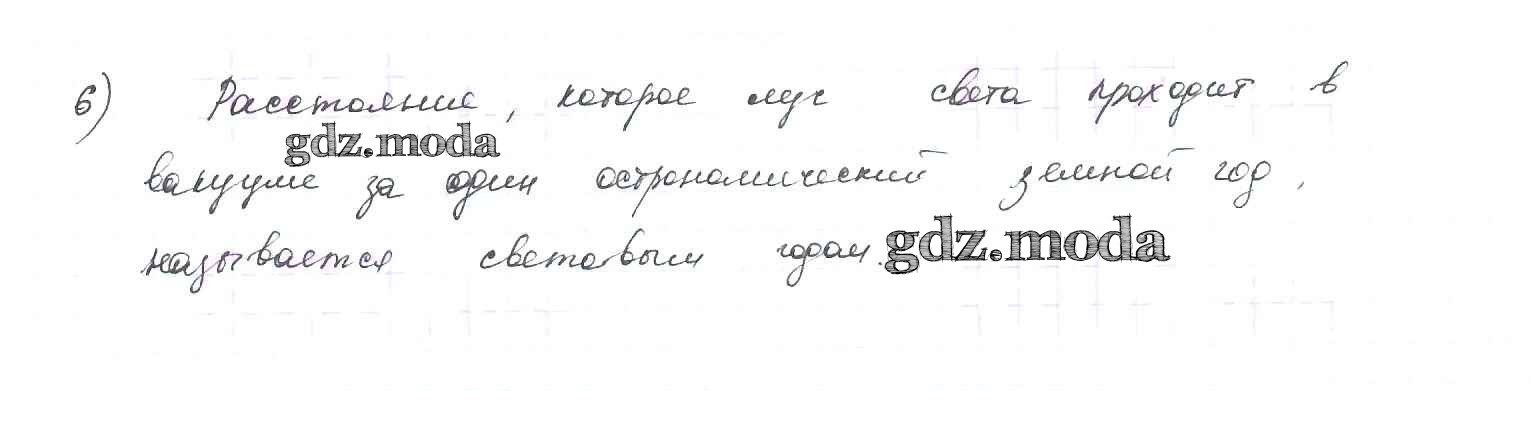 6) Расстояние, которое луч света проходит в
gdz.moda
вакууме за один острономический земной год,
называется световым годом. gdz.moda